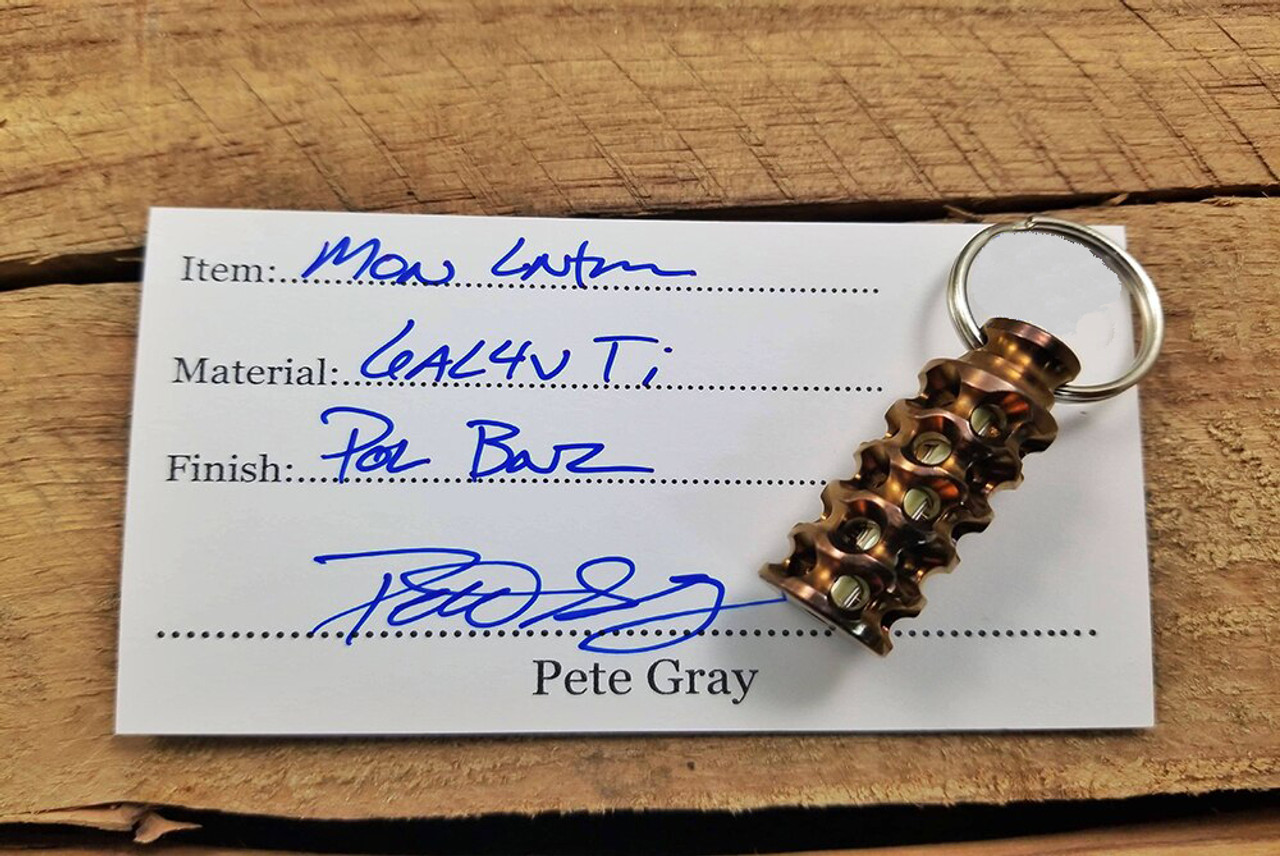 Item: Mon Lntrn
Material: 6AL4V Ti
Finish: Pol Bonz
Pete Gray
Pete Gray